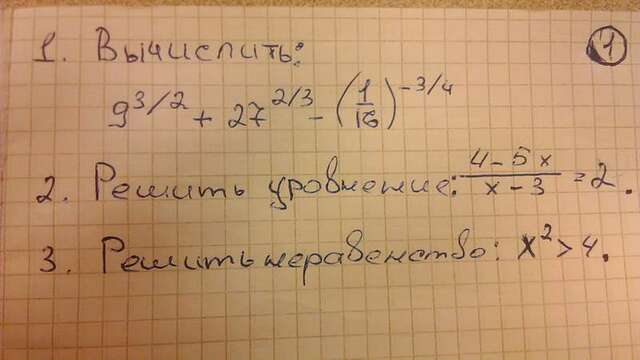 1. Вычислить: 1
9^{3/2} + 27^{2/3} - (1/16)^{-3/4}
2. Решить уровнение: (4-5x)/(x-3) = 2.
3. Решить неравенство: x² > 4.